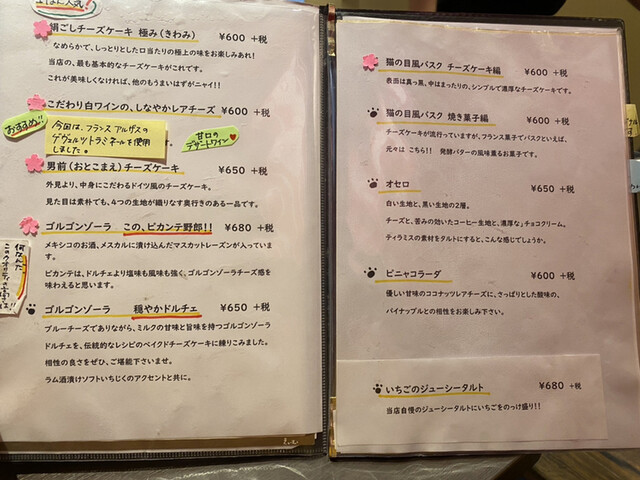 人気!
絹ごしチーズケーキ 極み(きわみ) ¥600 +税
なめらかで、しっとりとした口当たりの極上の味をお楽しみあれ!
当店の、最も基本的なチーズケーキがこれです。
これが美味しくなければ、他のもうまいはずがニャイ!!
こだわり白ワインの、しなやかレアチーズ ¥600 +税
おすすめ!!
今回は、フランス アルザスの
ゲヴュルツトラミネールを使用
しました。
甘口の
デザートワイン
男前(おとこまえ)チーズケーキ ¥650 +税
外見より、中身にこだわるドイツ風のチーズケーキ。
見た目は素朴でも、4つの生地が織りなす奥行きのある一品です。
ゴルゴンゾーラ この、ピカンテ野郎!! ¥680 +税
メキシコのお酒、メスカルに漬け込んだマスカットレーズンが入っています。
ピカンテは、ドルチェより塩味も風味も強く、ゴルゴンゾーラチーズ感を
味わえると思います。
何なんだ
このクオリティの高さは!!
ゴルゴンゾーラ 穏やかドルチェ ¥650 +税
ブルーチーズでありながら、ミルクの甘味と旨味を持つゴルゴンゾーラ
ドルチェを、伝統的なレシピのベイクドチーズケーキに練りこみました。
相性の良さをぜひ、ご堪能下さいませ。
ラム酒漬けソフトいちじくのアクセントと共に。
猫の目風バスク チーズケーキ編 ¥600 +税
表面は真っ黒、中はまったりの、シンプルで濃厚なチーズケーキです。
猫の目風バスク 焼き菓子編 ¥600 +税
チーズケーキが流行っていますが、フランス菓子でバスクといえば、
元々は こちら!! 発酵バターの風味薫るお菓子です。
オセロ ¥650 +税
白い生地と、黒い生地の2層。
チーズと、苦みの効いたコーヒー生地と、濃厚な」チョコクリーム。
ティラミスの素材をタルトにすると、こんな感じでしょうか。
ピニャコラーダ ¥600 +税
優しい甘味のココナッツレアチーズに、さっぱりとした酸味の、
パイナップルとの相性をお楽しみ下さい。
いちごのジューシータルト ¥680 +税
当店自慢のジューシータルトにいちごをのっけ盛り!!